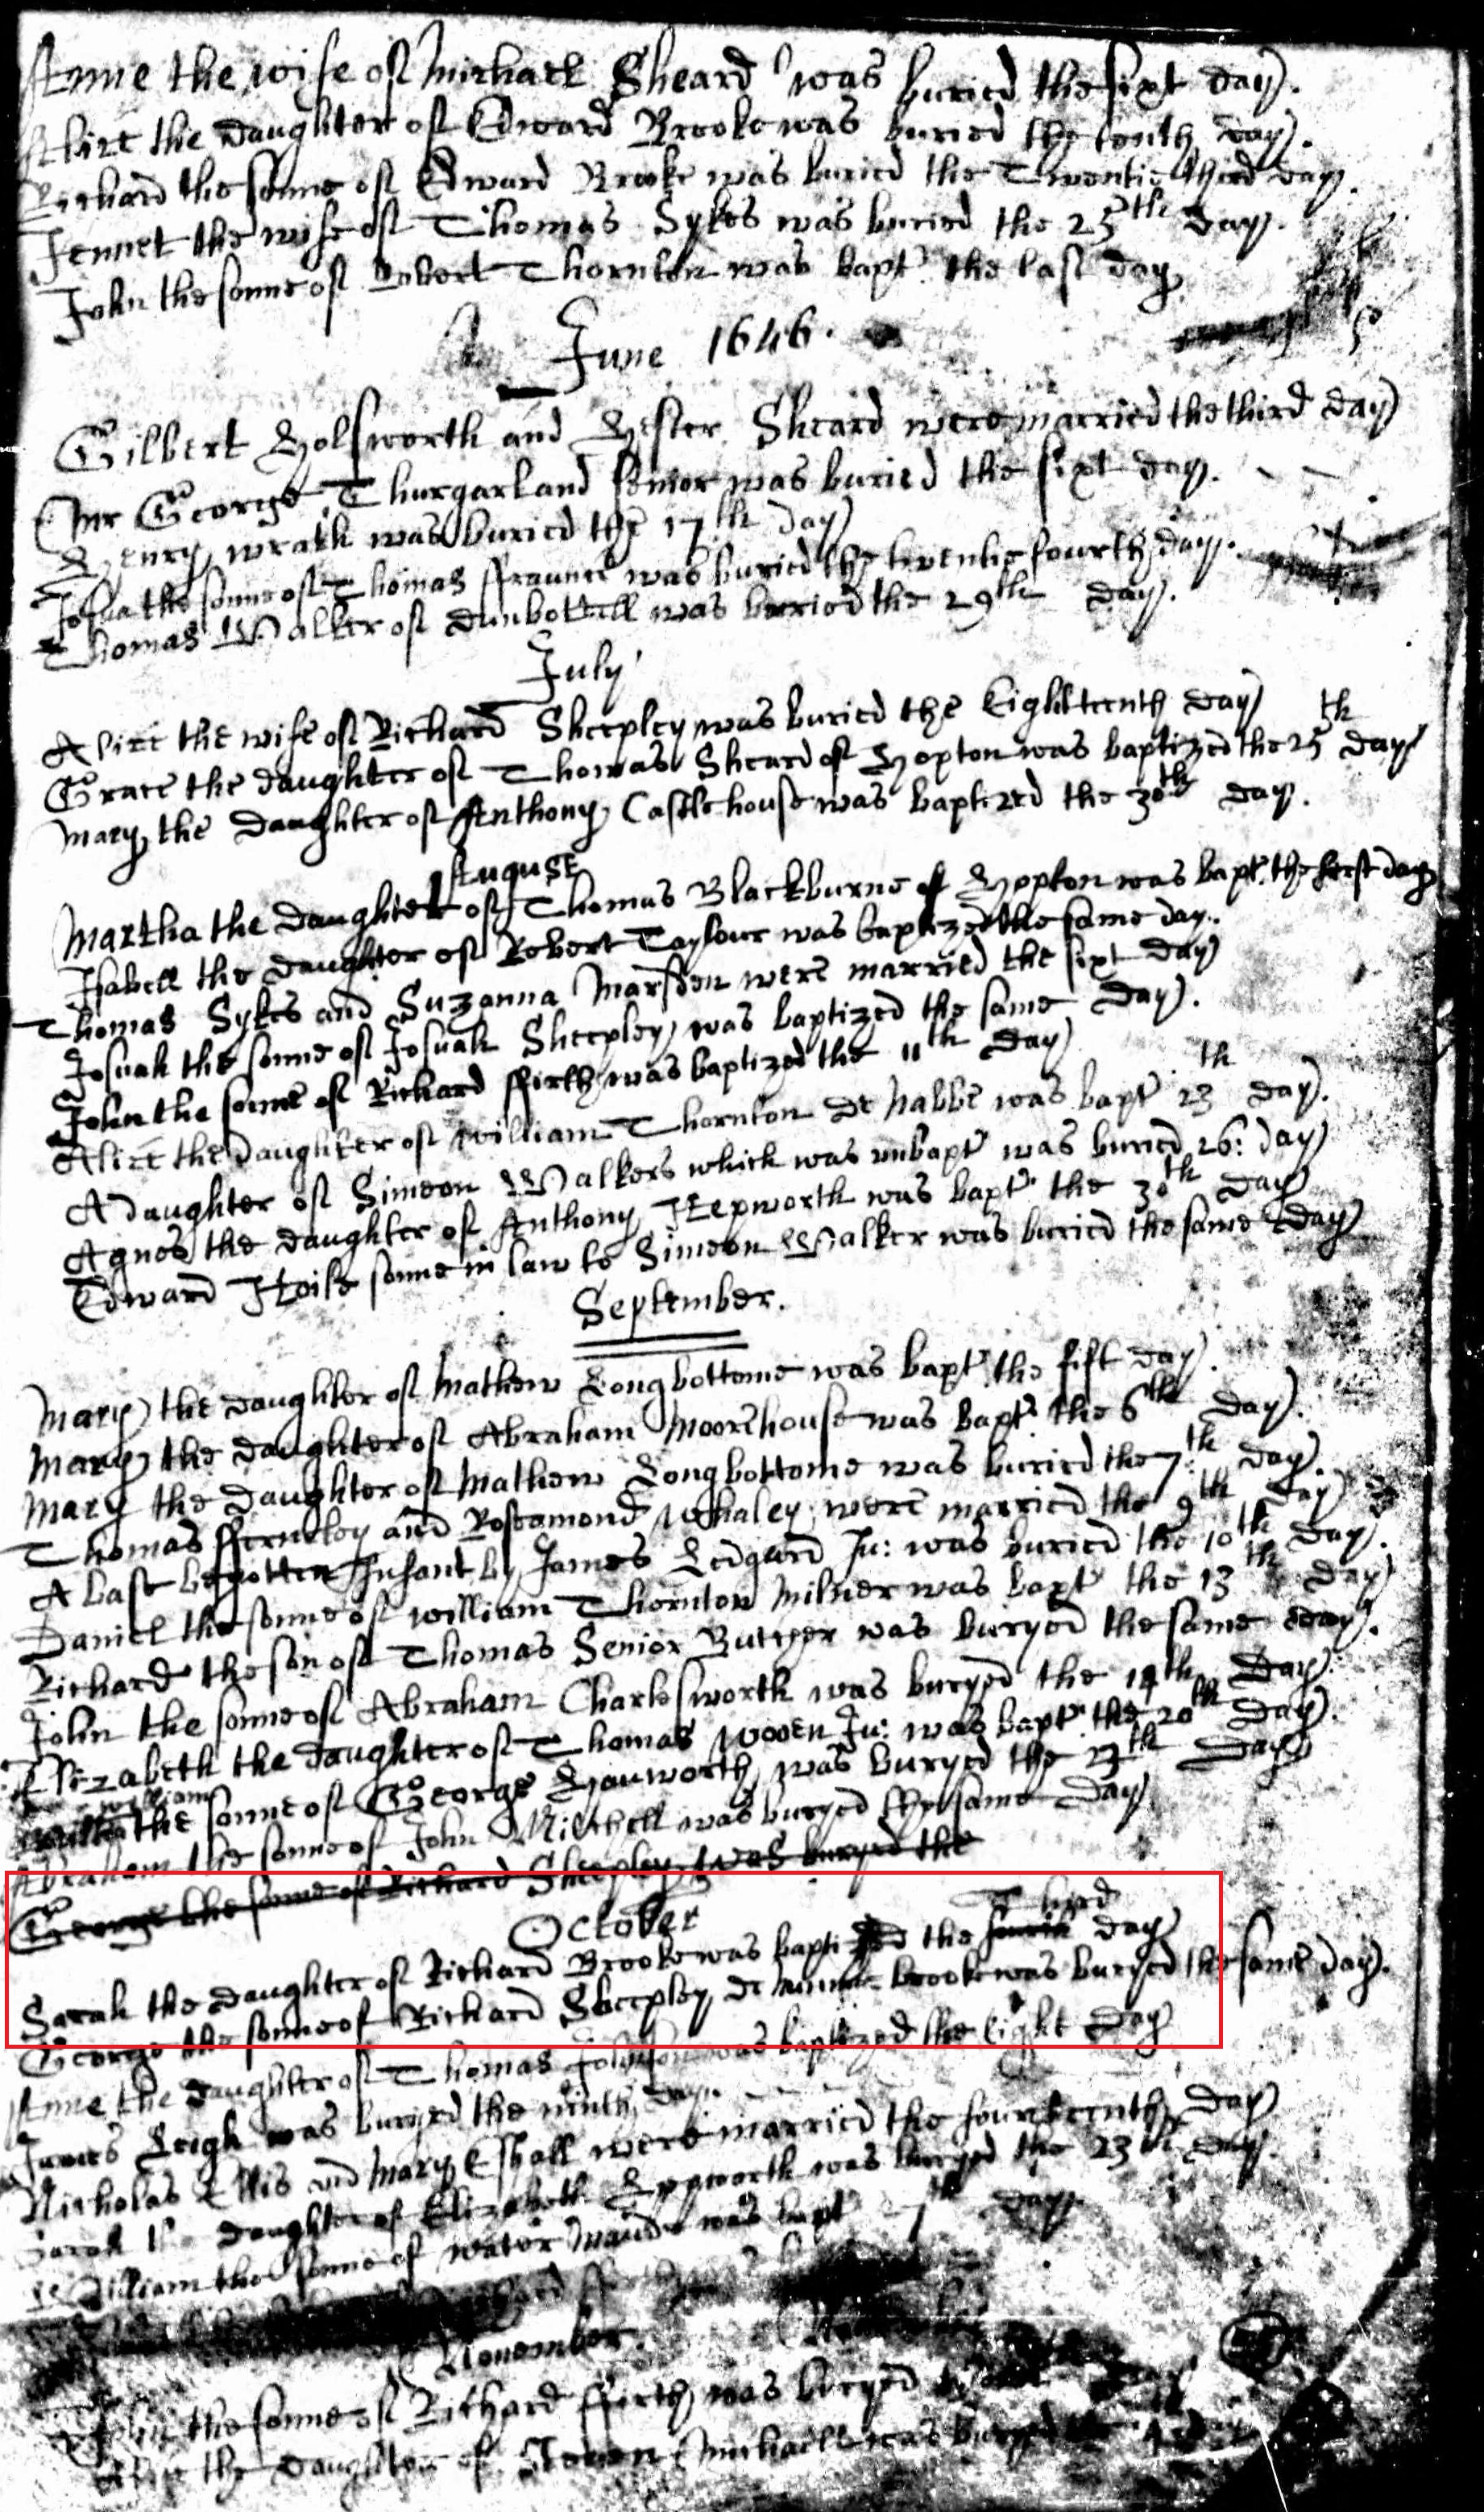 Anne the wife of Michaell Sheard was buried the sixt day.
Alice the daughter of Edward Brooke was buried the tenth day.
Richard the sonne of Edward Brooke was buried the Twentie third day.
Jennet the wife of Thomas Sykes was buried the 25th day.
John the sonne of Robert Thornton was bapt: the last day
June 1646.
Gilbert Holsworth and Hester Sheard were married the third day
Mr George Thurgarland senior was buried the sixt day.
Henry was buried the 17th day
the sonne of Thomas ffraunce was buried the twentie fourth day.
Thomas Walker of was buried the 29th day.
July
Alice the wife of Richard Sheepley was buried the Eighteenth day
Grace the daughter of Thomas Sheard of Hopton was baptized the 25th day
Mary the daughter of Anthony Castlehouse was baptized the 30th day.
August
Martha the daughter of Thomas Blackburne of Hopton was bapt: the first day
Isabell the daughter of Robert Taylour was baptized the same day.
Thomas Sykes and Suzanna Marsden were married the sixt day
Josuah the sonne of Josuah Sheepley was baptized the same day.
John the sonne of Richard ffirth was baptized the 11th day
Alice the daughter of William Thornton de was bapt 23th day.
A daughter of Simeon Walkers which was unbapt was buried 26: day
Agnes the daughter of Anthony Hepworth was bapt: the 30th day
Edward sonne in law to Simeon Walker was buried the same day
September.
Mary the daughter of Mathew Longbottome was bapt: the fift day.
Mary the daughter of Abraham Moorehouse was bapt: the 6th day.
Mary the daughter of Mathew Longbottome was buried the 7th day.
Thomas and Rosamond Whaley were married the 9th day
A base begotten Infant by James Ledgard Ju: was buried the 10th day.
Daniel the sonne of William Thornton Milner was bapt the 13th day
Richard the son of Thomas Senior was buryed the same day.
John the sonne of Abraham Charlesworth was buryed the 14th day.
Elizabeth the daughter of Thomas Ju: was bapt: the 20th day.
William
the sonne of George was buryed the day
Abraham the sonne of John Mitchell was buryed the same day
George the sonne of Richard Sheepley was buryed the
October
Third
Sarah the daughter of Richard Brooke was baptized the fourth day
George the sonne of Richard Sheepley de brooke was buryed the same day.
Anne the daughter of Thomas was baptized the eight day
James Leigh was buryed the ninth day.
Nicholas Ellis and Mary were married the fourteenth day
Sarah the daughter of Elizabeth Eppworth was buryed the 23th day.
William the sonne of was bapt day
November.
the sonne of Richard ffirth was buryed
the daughter of Michaell was buryed